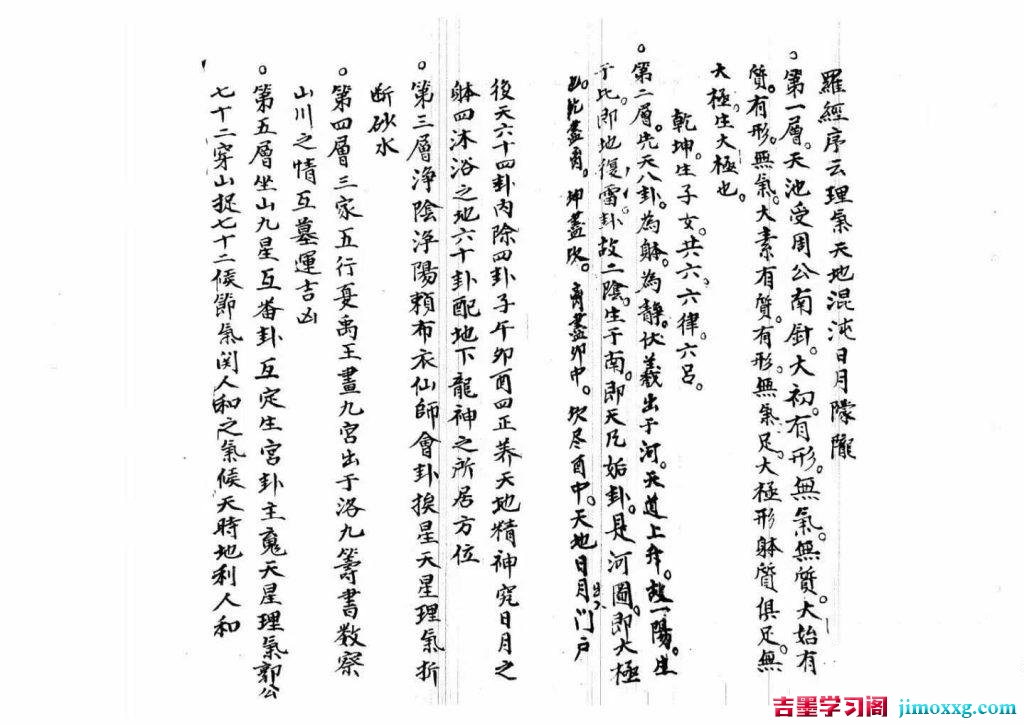 羅經序云理氣天地混沌日月朦朧
。第一層。天池受周公南針。大初。有形。無氣。無質。大始有
質。有形。無氣。大素有質。有形。無氣足。大極形躰質俱足。無
大極。生大極也。
乾坤。生子女。共六。六律。六呂。
。第二層。先天八卦。為躰。為靜。伏羲出于河。天道上升。故一陽。生
于北。即地復雷卦故二陰。生于南。即天风姤卦。是河圖。即大極
乾盡离。坤盡坎。离盡卯中。坎尽酉中。天地日月门户
後天六十四卦內除四卦子午卯酉四正养天地精神究日月之
躰四沐浴之地六十卦配地下龍神之所居方位
。第三層淨陰淨陽賴布衣仙師會卦挨星天星理氣折
断砂水
。第四層三家五行夏禹王畫九宮出于洛九籌書数察
山川之情互墓運吉凶
。第五層坐山九星互番卦互定生宮卦主寬天星理氣郭公
七十二穿山捉七十二候節氣関人和之氣候天時地利人和
吉墨学习阁 jimoxxg.com